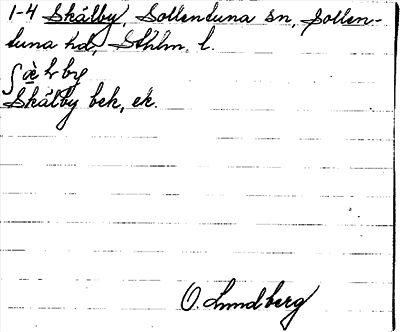 1-4 Skålby, Sollentuna sn, Sollen-
tuna hd, Sthlm. l.
Skålby bek, ek.
O. Lundberg